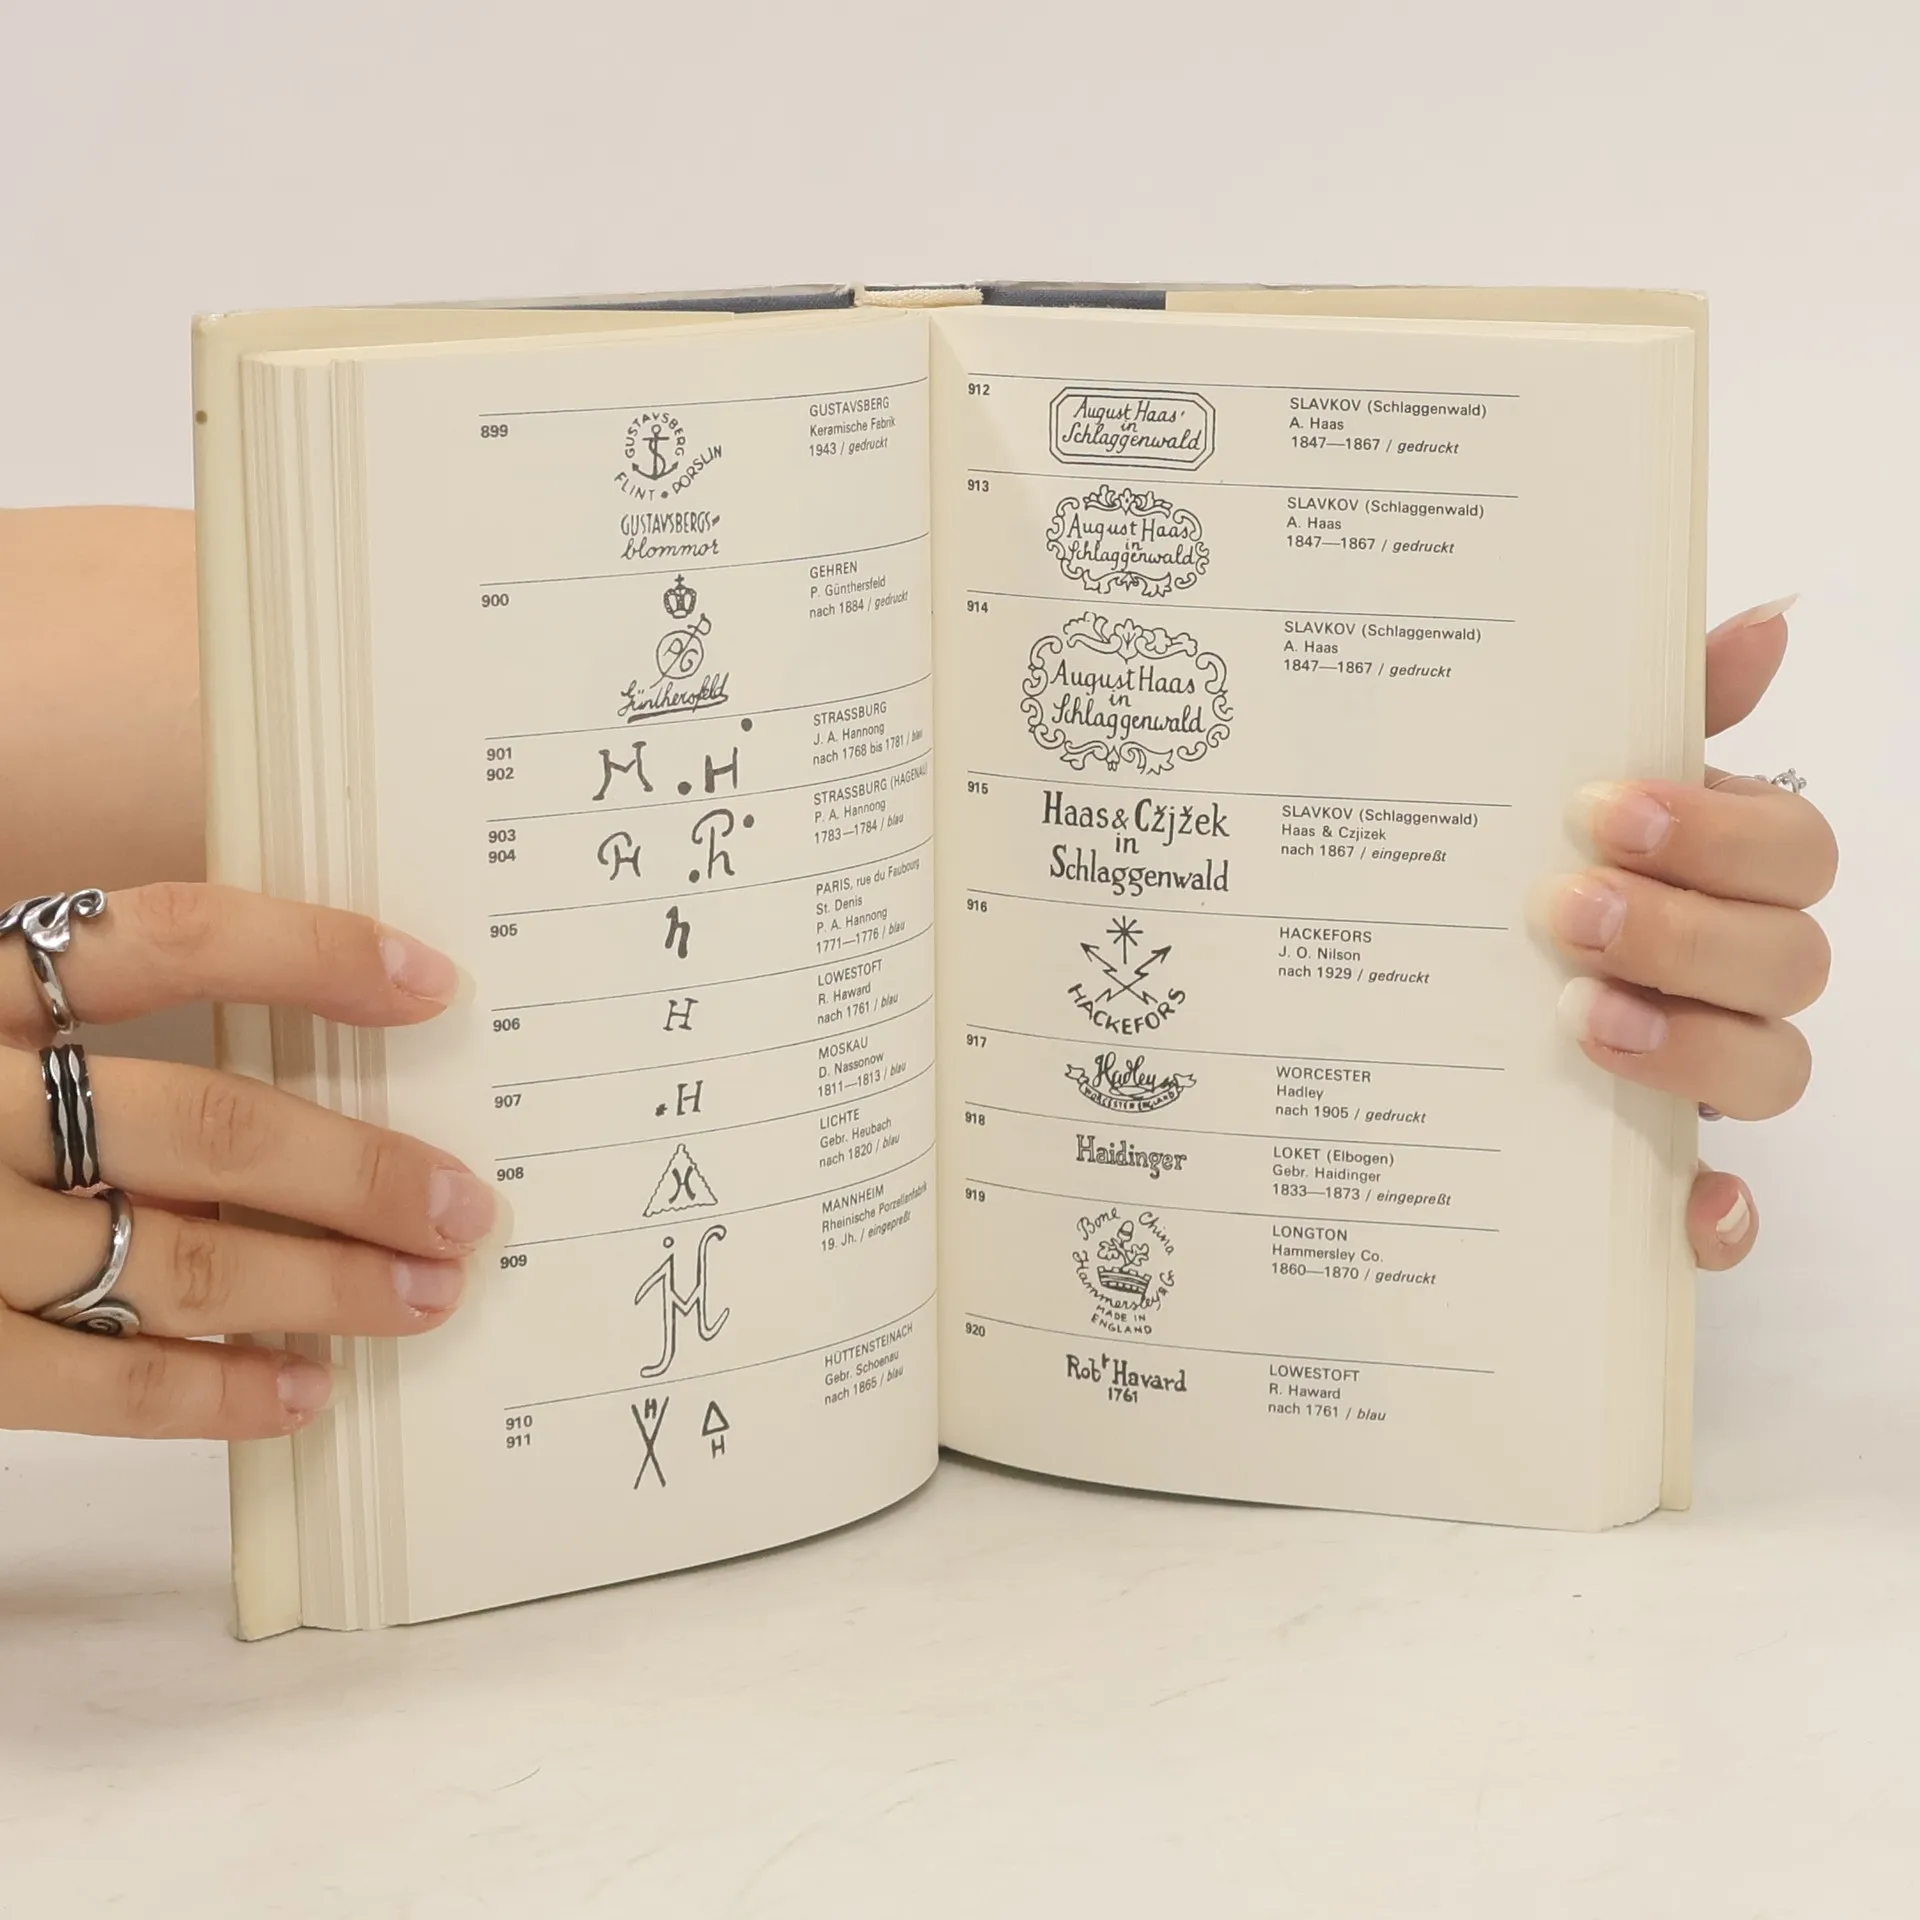 899
GUSTAVSBERG
FLINT • PORSLIN
GUSTAVSBERGS-
blommor
GUSTAVSBERG
Keramische Fabrik
1943 / gedruckt
900
PG
Günthersfeld
GEHREN
P. Günthersfeld
nach 1884 / gedruckt
901
902
H .H
STRASSBURG
J. A. Hannong
nach 1768 bis 1781 / blau
903
904
STRASSBURG (HAGENAU)
P. A. Hannong
1783—1784 / blau
905
h
PARIS, rue du Faubourg
St. Denis
P. A. Hannong
1771—1776 / blau
906
H
LOWESTOFT
R. Haward
nach 1761 / blau
907
H
MOSKAU
D. Nassonow
1811—1813 / blau
908
H
LICHTE
Gebr. Heubach
nach 1820 / blau
909
MANNHEIM
Rheinische Porzellanfabrik
19. Jh. / eingepreßt
910
911
H
H
HÜTTENSTEINACH
Gebr. Schoenau
nach 1865 / blau
912
August Haas
in
Schlaggenwald
SLAVKOV (Schlaggenwald)
A. Haas
1847—1867 / gedruckt
913
August Haas
in
Schlaggenwald
SLAVKOV (Schlaggenwald)
A. Haas
1847—1867 / gedruckt
914
August Haas
in
Schlaggenwald
SLAVKOV (Schlaggenwald)
A. Haas
1847—1867 / gedruckt
915
Haas & Cžjžek
in
Schlaggenwald
SLAVKOV (Schlaggenwald)
Haas & Czjizek
nach 1867 / eingepreßt
916
HACKEFORS
HACKEFORS
J. O. Nilson
nach 1929 / gedruckt
917
Hadley
WORCESTER ENGLAND
WORCESTER
Hadley
nach 1905 / gedruckt
918
Haidinger
LOKET (Elbogen)
Gebr. Haidinger
1833—1873 / eingepreßt
919
Bone China
Hammersley & Co
MADE IN
ENGLAND
LONGTON
Hammersley Co.
1860—1870 / gedruckt
920
Robt Havard
1761
LOWESTOFT
R. Haward
nach 1761 / blau